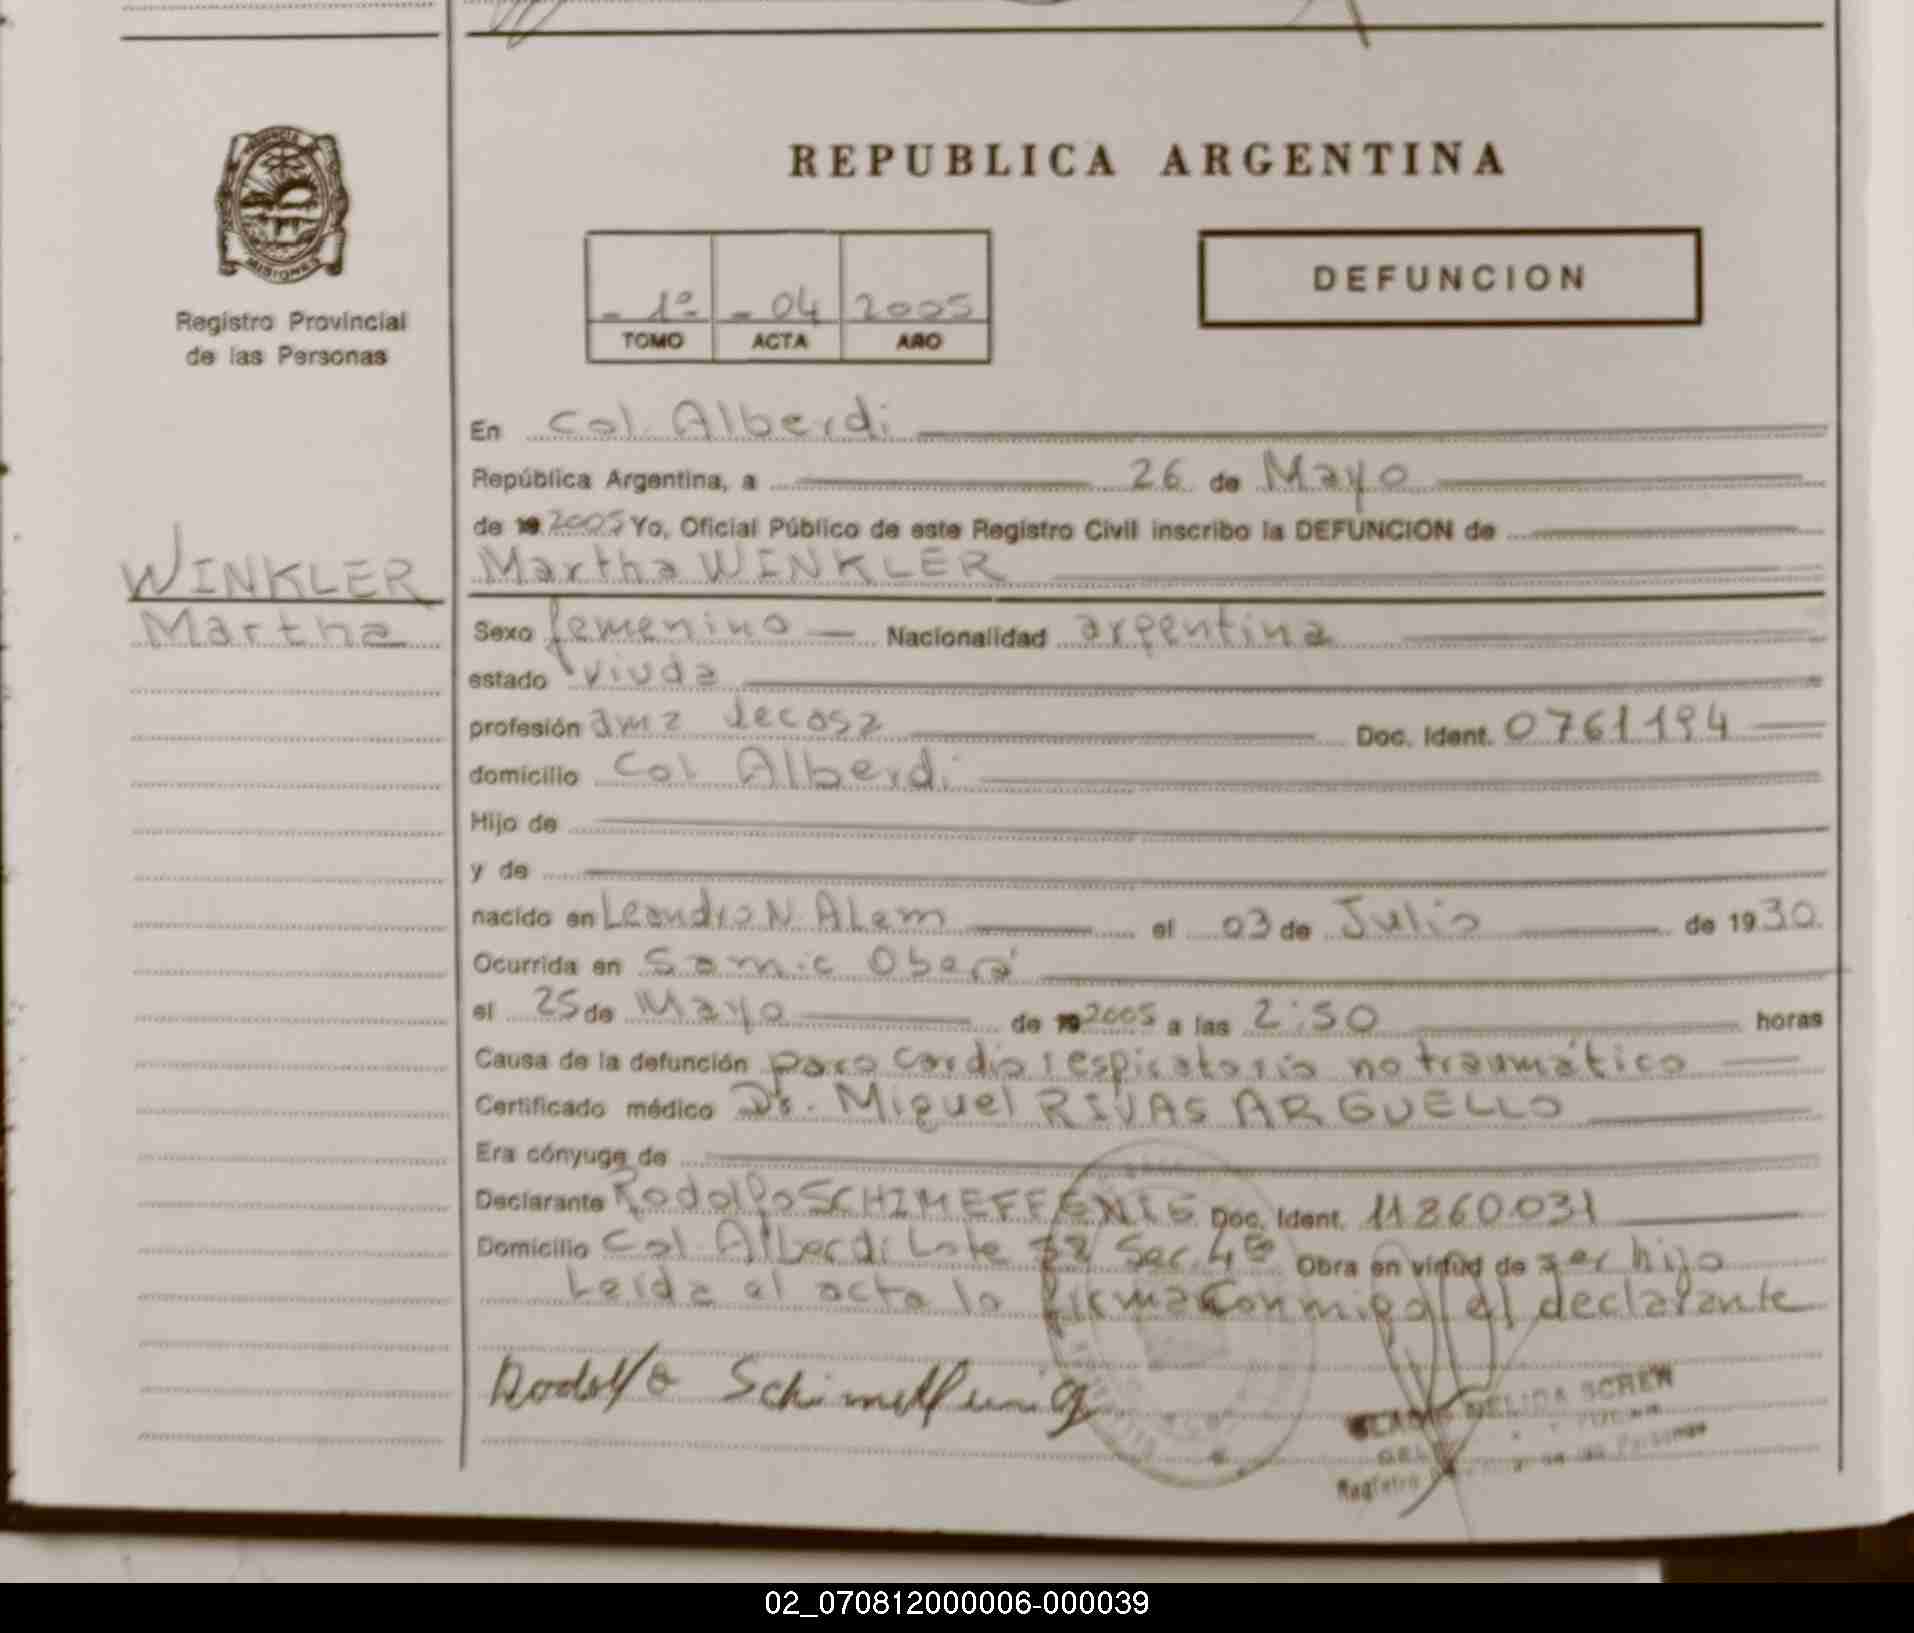 PROVINCIA
MISIONES
Registro Provincial
de las Personas
REPUBLICA ARGENTINA
- 1º - 04 2005
TOMO ACTA AÑO
DEFUNCION
En Col. Alberdi
República Argentina, a 26 de Mayo
de 19 2005 Yo, Oficial Público de este Registro Civil inscribo la DEFUNCION de
WINKLER
Martha
Martha WINKLER
Sexo femenino Nacionalidad argentina
estado viuda
profesión ama decasa Doc. Ident. 0761194
domicilio Col Alberdi
Hijo de
y de
nacido en Leandro N. Alem el 03 de Julio de 1930
Ocurrida en Samic Oberá
el 25 de Mayo de 19 2005 a las 2:50 horas
Causa de la defunción paro cardio respiratorio no traumático
Certificado médico Dr. Miguel RIVAS ARGUELLO
Era cónyuge de
Declarante Rodolfo SCHIMEFFENIG Doc. Ident. 11860031
Domicilio Col Alberdi Lote Sec. 4º Obra en virtud de ser hijo
Leída el acta la firma conmigo el declarante
Rodolfo Schimelfenig
NELIDA SCREN
Registro de las Personas
02_070812000006-000039